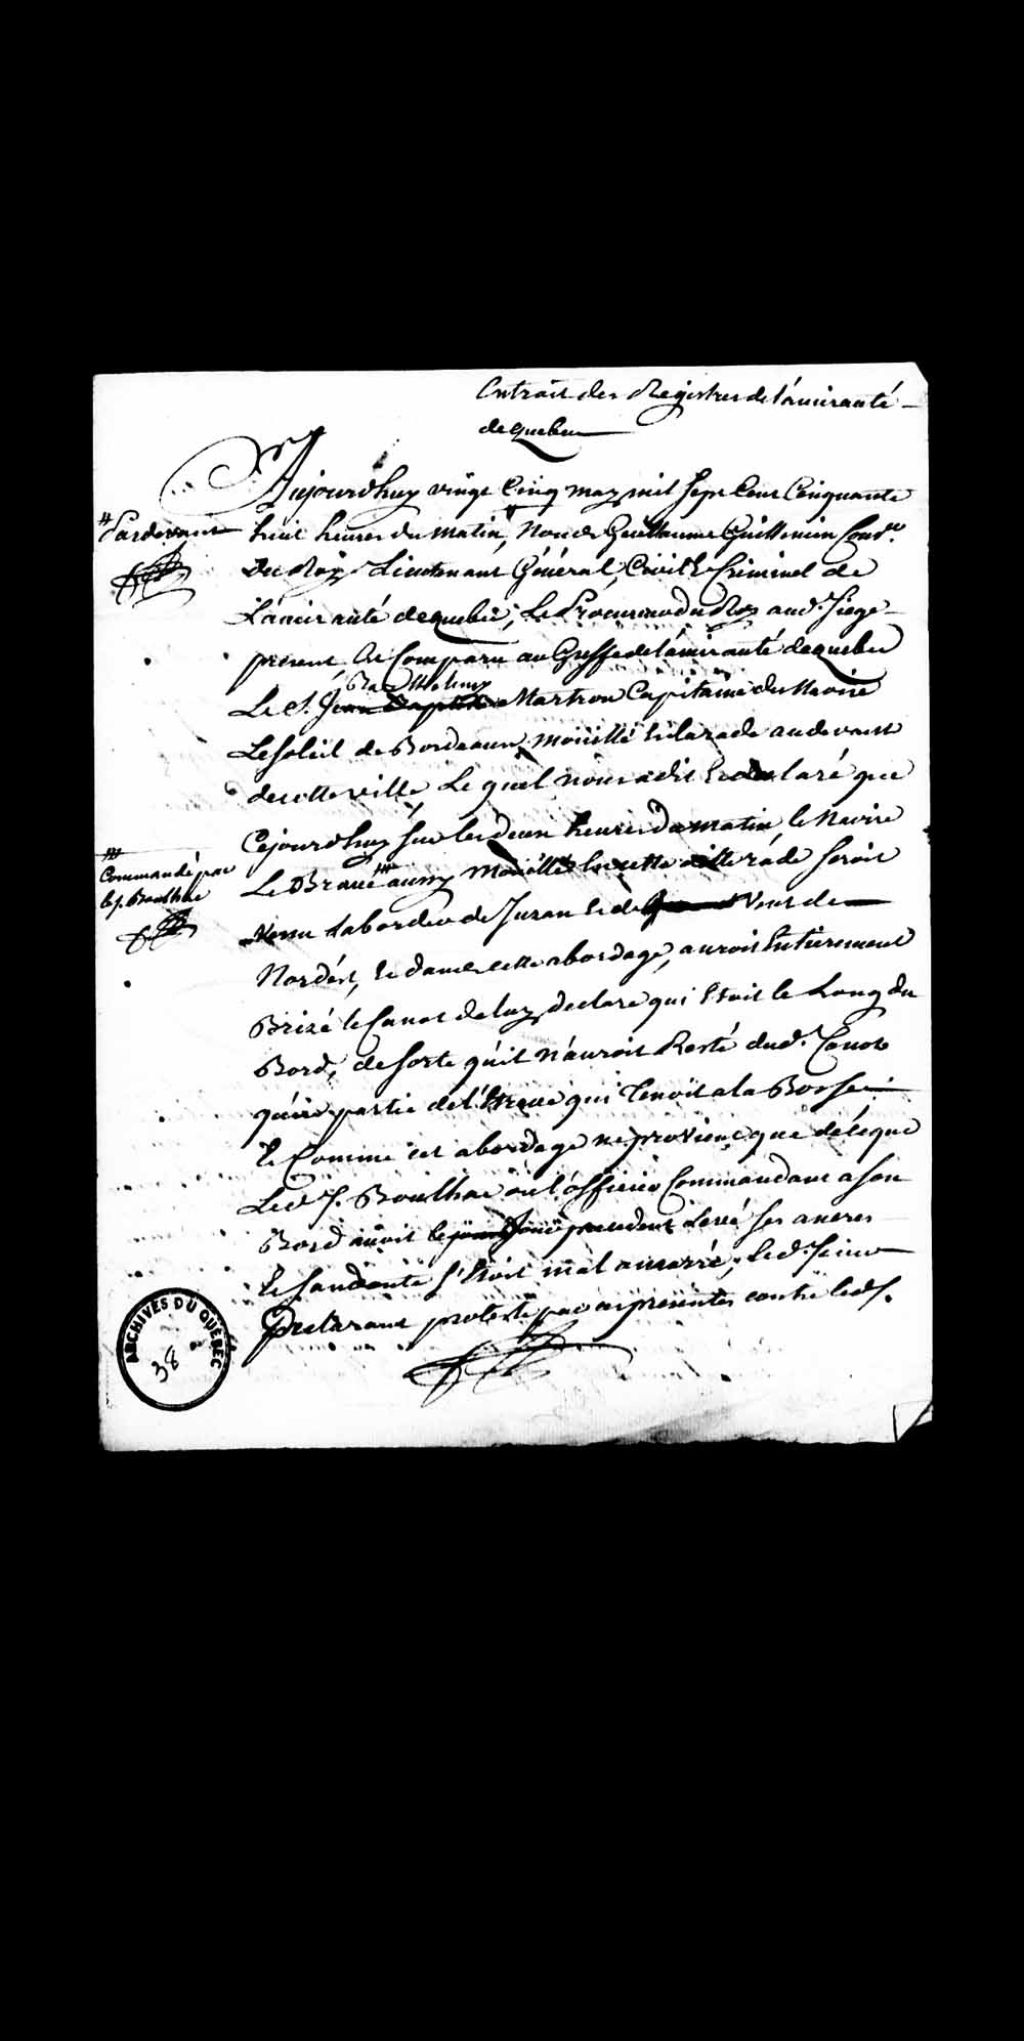 Extrait des Registres de l'amirauté
de quebec
Aujourd'huy vingt Cinq may mil sept Cent Cinquante
# Pardevant
huit heures du matin, Nous Guillaume Guillimin Con.er
Du Roy Lieutenant Général, Civil & Criminel de
L'amirauté de quebec, Le Procureur du Roy aud. Siege
present, Est Comparu au Greffe de l'amirauté de quebec
Barthelemy
Le S. Jean Baptiste Martron Capitaine du Navire
Le Soleil de Bordeaux moüillé En la rade au devant
de cette ville Le quel nous a dit Et declaré que
Cejourd'huy sur les deux heures du matin le Navire
###
Commandé par
le s. Boulhac
Le Brave ### aussy moüillé En cette rade seroit
Venu L'aborder de Et de Vent de
Nordést, Et dans cette abordage, auroit Entierement
Brizé le Canot de luy declare qui Etoit le Long du
Bord, de sorte qu'il n'auroit Resté dud. Canot
qu'une partie de l'Etrave qui Tenoit a la Bosse
Et Comme cet abordage ne provient que de ce que
Led. S. Boulhac ou l'officier Commandant a son
Bord avoit le jour precedent Levé ses ancres
Et sans doute s'Etoit mal amarré; led. Sieur
Declarant proteste par ces presentes contre led. S.
ARCHIVES DU QUÉBEC
38